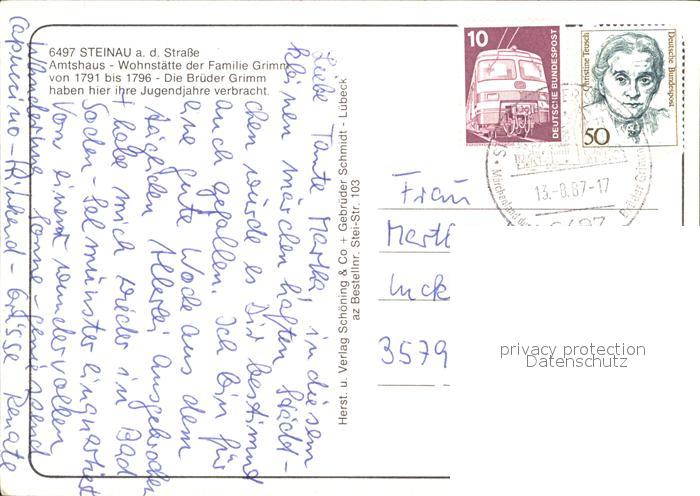 6497 STEINAU a. d. Straße
Amtshaus - Wohnstätte der Familie Grimm
von 1791 bis 1796 - Die Brüder Grimm
haben hier ihre Jugendjahre verbracht.
Liebe Tante Martha, in diesem
kleinen märchenhaften Städt-
chen würde es Dir bestimmt
auch gefallen. Ich bin für
eine gute Woche aus dem
Allerlei ausgebrochen
+ habe mich wieder in Bad
Soden-Salmünster einquartiert
Von einer wundervollen
Wanderung Sonne-geniessend
Capuccino-trinkend - Grüsse Renate
Herst. u. Verlag Schöning & Co + Gebrüder Schmidt - Lübeck
az Bestellnr. Stei-Str. 103
10
DEUTSCHE BUNDESPOST
Christine Teusch
Deutsche Bundespost
50
13.-8.87-17
Märchenland der
Brüder Grimm
6497
Frau
Marth
Luck
3579
privacy protection
Datenschutz